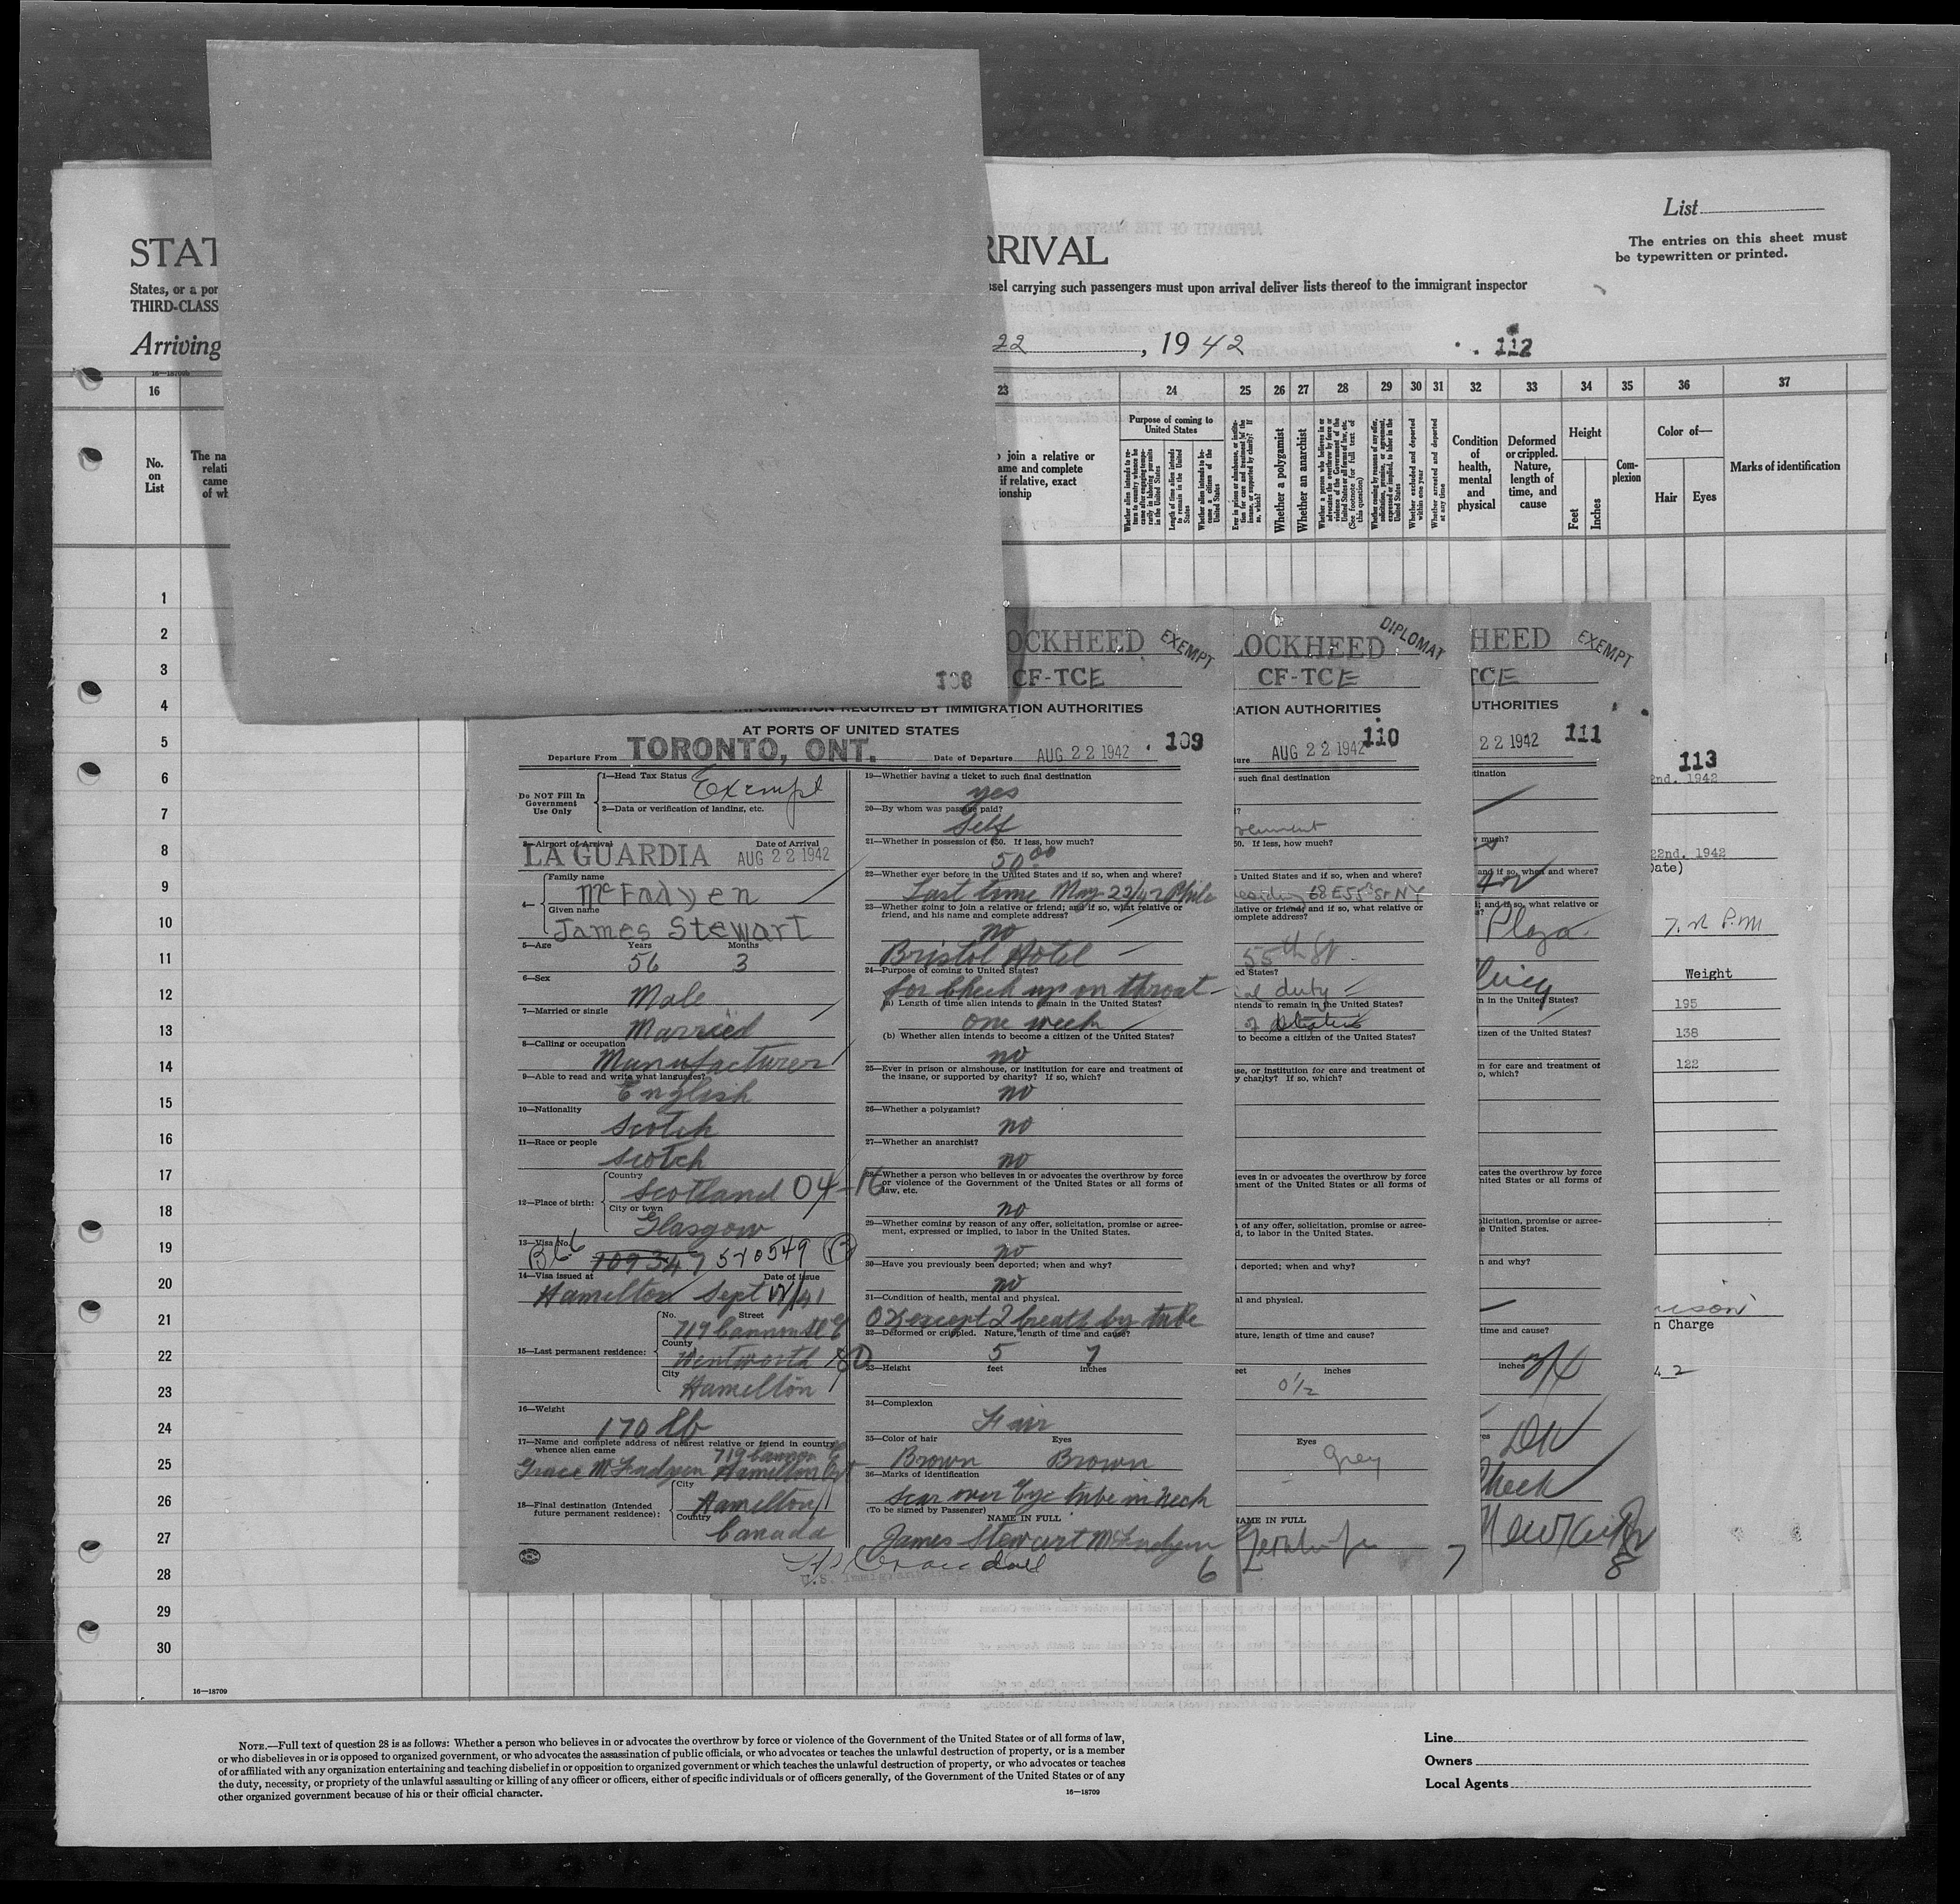 List
The entries on this sheet must
be typewritten or printed.
STAT
RRIVAL
States, or a por
sel carrying such passengers must upon arrival deliver lists thereof to the immigrant inspector
THIRD-CLASS
Arriving
22, 1942
112
16—18709b
16 23 24 25 26 27 28 29 30 31 32 33 34 35 36 37
No.
on
List
The na
relati
came
of wh
join a relative or
ame and complete
if relative, exact
ionship
Purpose of coming to
United States
Whether alien intends to re-
turn to country whence he
came after engaging tempo-
rarily in laboring pursuits
in the United States
Length of time alien intends
to remain in the United
States
Whether alien intends to be-
come a citizen of the
United States
Ever in prison or almshouse, or institu-
tion for care and treatment of the
insane, or supported by charity? If
so, which?
Whether a polygamist
Whether an anarchist
Whether a person who believes in or
advocates the overthrow by force or
violence of the Government of the
United States or all forms of law, etc.
(See footnote for full text of
this question)
Whether coming by reason of any offer,
solicitation, promise, or agreement,
expressed or implied, to labor in the
United States
Whether excluded and deported
within one year
Whether arrested and deported
at any time
Condition
of
health,
mental
and
physical
Deformed
or crippled.
Nature,
length of
time, and
cause
Height
Feet
Inches
Com-
plexion
Color of—
Hair
Eyes
Marks of identification
1
2
3
4
5
6
7
8
9
10
11
12
13
14
15
16
17
18
19
20
21
22
23
24
25
26
27
28
29
30
16—18709
108
OCKHEED EXEMPT
CF-TCE
INFORMATION REQUIRED BY IMMIGRATION AUTHORITIES
AT PORTS OF UNITED STATES
Departure From TORONTO, ONT. Date of Departure AUG 22 1942 109
Do NOT Fill In
Government
Use Only
1—Head Tax Status Exempt
2—Data or verification of landing, etc.
3—Airport of Arrival Date of Arrival
LA GUARDIA AUG 22 1942
4—
Family name
McFadyen
Given name
James Stewart
5—Age Years Months
56 3
6—Sex
Male
7—Married or single
Married
8—Calling or occupation
Manufacturer
9—Able to read and write what languages?
English
10—Nationality
Scotch
11—Race or people
Scotch
12—Place of birth:
Country
Scotland 04-16
City or town
Glasgow
13—Visa No.
109347 570549 B
14—Visa issued at Date of Issue
Hamilton Sept 12/41
15—Last permanent residence:
No. Street
719 Cannon St E
County
Wentworth
City
Hamilton
16—Weight
170 lb
17—Name and complete address of nearest relative or friend in country
whence alien came
719 Cannon E
Grace McFadyen Hamilton Ont
18—Final destination (Intended
future permanent residence):
City
Hamilton
Country
Canada
19—Whether having a ticket to such final destination
yes
20—By whom was passage paid?
Self
21—Whether in possession of $50. If less, how much?
50.00
22—Whether ever before in the United States and if so, when and where?
Last time May 22/42 Phila
23—Whether going to join a relative or friend; and if so, what relative or
friend, and his name and complete address?
no
Bristol Hotel
24—Purpose of coming to United States?
for check up on throat
(a) Length of time alien intends to remain in the United States?
one week
(b) Whether alien intends to become a citizen of the United States?
no
25—Ever in prison or almshouse, or institution for care and treatment of
the insane, or supported by charity? If so, which?
no
26—Whether a polygamist?
no
27—Whether an anarchist?
no
28—Whether a person who believes in or advocates the overthrow by force
or violence of the Government of the United States or all forms of
law, etc.
no
29—Whether coming by reason of any offer, solicitation, promise or agree-
ment, expressed or implied, to labor in the United States.
no
30—Have you previously been deported; when and why?
no
31—Condition of health, mental and physical.
OK except I breath by tube
32—Deformed or crippled. Nature, length of time and cause?
5 7
33—Height feet inches
34—Complexion
Fair
35—Color of hair Eyes
Brown Brown
36—Marks of identification
Scar over Eye tube in neck
(To be signed by Passenger)
NAME IN FULL
James Stewart McFadyen
6
U.S. Immigrant
LOCKHEED DIPLOMAT
CF-TCE
ATION AUTHORITIES
110
ture AUG 22 1942
such final destination
50. If less, how much?
United States and if so, when and where?
68 E 55th St NY
lative or friend; and if so, what relative or
omplete address?
55th St
ed States?
duty
ntends to remain in the United States?
to become a citizen of the United States?
se, or institution for care and treatment of
y charity? If so, which?
ieves in or advocates the overthrow by force
nment of the United States or all forms of
n of any offer, solicitation, promise or agree-
d, to labor in the United States.
deported; when and why?
al and physical.
ature, length of time and cause?
eet inches
0 1/2
Eyes
Grey
NAME IN FULL
7
HEED EXEMPT
TCE
UTHORITIES
22 1942 111
tination
much?
and if so, when and where?
; and if so, what relative or
Plaza
n in the United States?
tizen of the United States?
n for care and treatment of
o, which?
cates the overthrow by force
nited States or all forms of
licitation, promise or agree-
e United States.
n and why?
time and cause?
inches 3/4
DK
Cheek
8
113
2nd. 1942
22nd. 1942
Date)
P.M
Weight
195
138
122
n Charge
42
NOTE.—Full text of question 28 is as follows: Whether a person who believes in or advocates the overthrow by force or violence of the Government of the United States or of all forms of law,
or who disbelieves in or is opposed to organized government, or who advocates the assassination of public officials, or who advocates or teaches the unlawful destruction of property, or is a member
of or affiliated with any organization entertaining and teaching disbelief in or opposition to organized government or which teaches the unlawful destruction of property, or who advocates or teaches
the duty, necessity, or propriety of the unlawful assaulting or killing of any officer or officers, either of specific individuals or of officers generally, of the Government of the United States or of any
other organized government because of his or their official character.
16—18709
Line
Owners
Local Agents